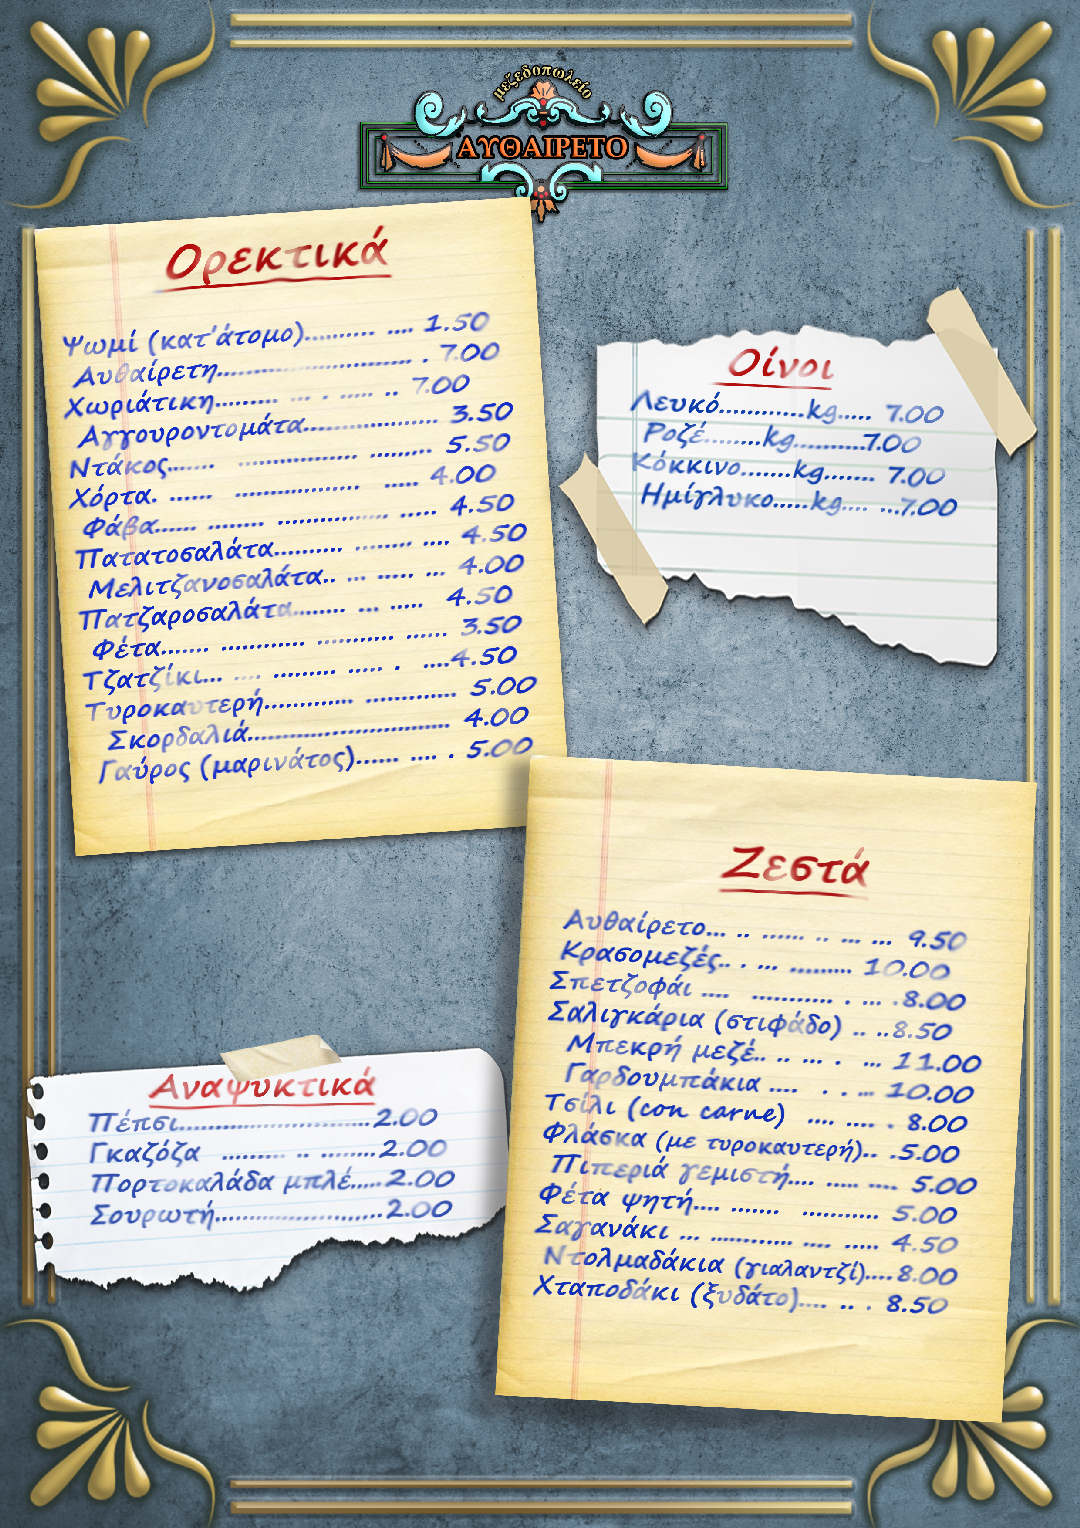 μεζεδοπωλείο
ΑΥΘΑΙΡΕΤΟ
Ορεκτικά
Ψωμί (κατ'άτομο)......... .... 1.50
Αυθαίρετη.......................... . 7.00
Χωριάτικη......... ... . ..... .. 7.00
Αγγουροντομάτα................... 3.50
Ντάκος....... ................. ......... 5.50
Χόρτα. ...... .................. ..... 4.00
Φάβα...... ........ ................ ..... 4.50
Πατατοσαλάτα.......... ........ .... 4.50
Μελιτζανοσαλάτα.. ... ..... ... 4.00
Πατζαροσαλάτα........ ... ..... 4.50
Φέτα....... ............ ........... ...... 3.50
Τζατζίκι... .... ......... ..... . ....4.50
Τυροκαυτερή............. ............. 5.00
Σκορδαλιά............................. 4.00
Γαύρος (μαρινάτος)...... .... . 5.00
Οίνοι
Λευκό............kg..... 7.00
Ροζέ........kg..........7.00
Κόκκινο.......kg....... 7.00
Ημίγλυκο.....kg.... ...7.00
Ζεστά
Αυθαίρετο... .. ...... .. ... ... 9.50
Κρασομεζές.. . ... ......... 10.00
Σπετζοφάι .... ........... . ... .8.00
Σαλιγκάρια (στιφάδο) .. ..8.50
Μπεκρή μεζέ.. .. ... . ... 11.00
Γαρδουμπάκια .... . . ... 10.00
Τσίλι (con carne) .... .... . 8.00
Φλάσκα (με τυροκαυτερή).. .5.00
Πιπεριά γεμιστή.... ..... .... 5.00
Φέτα ψητή.... ....... ........... 5.00
Σαγανάκι ... ............ .... ..... 4.50
Ντολμαδάκια (γιαλαντζί)....8.00
Χταποδάκι (ξυδάτο).... .. . 8.50
Αναψυκτικά
Πέπσι..............................2.00
Γκαζόζα ......... .. ........2.00
Πορτοκαλάδα μπλέ.....2.00
Σουρωτή..........................2.00